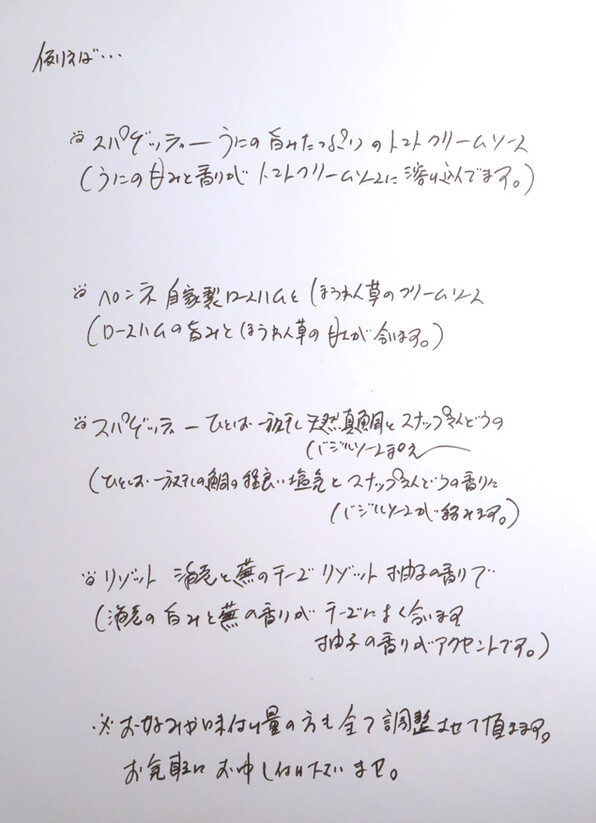 例えば…
スパゲッティー うにの旨みたっぷりのトマトクリームソース
(うにの甘みと香りがトマトクリームソースに溶け込んでます。)
ペンネ 自家製ロースハムとほうれん草のクリームソース
(ロースハムの旨みとほうれん草の甘さが合います。)
スパゲッティー ひとしお 一夜干し 天然真鯛とスナップえんどうの
バジルソース和え
(ひとしお 一夜干しの鯛の程良い塩気とスナップえんどうの香りに
バジルソースが絡みます。)
リゾット 海老と蕪のチーズリゾット 柚子の香りで
(海老の旨みと蕪の香りがチーズによく合います
柚子の香りがアクセントです。)
※お好みや味付け量の方も全て調整させて頂きます。
お気軽にお申し付け下さいませ。